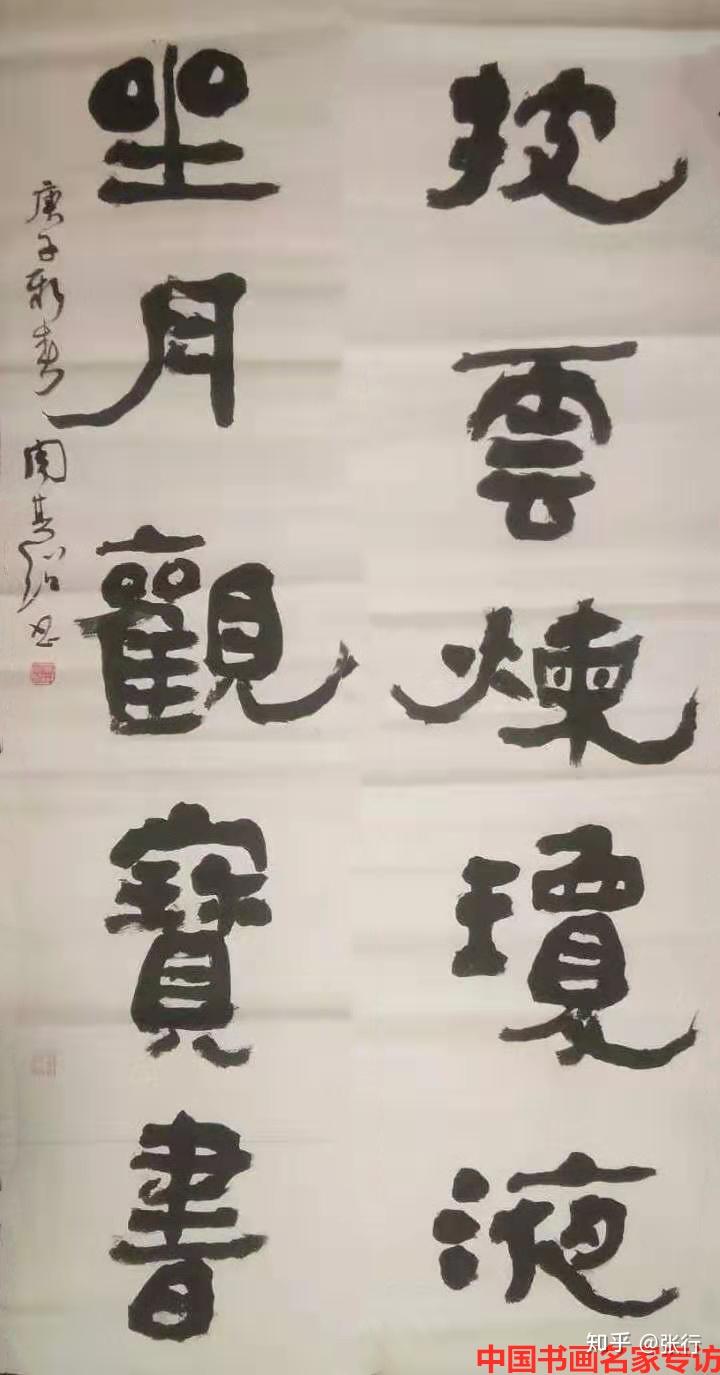 披雲煉瓊液
坐月觀寶書
庚子新春 周其紹书
知乎 @张行
中国书画名家专访